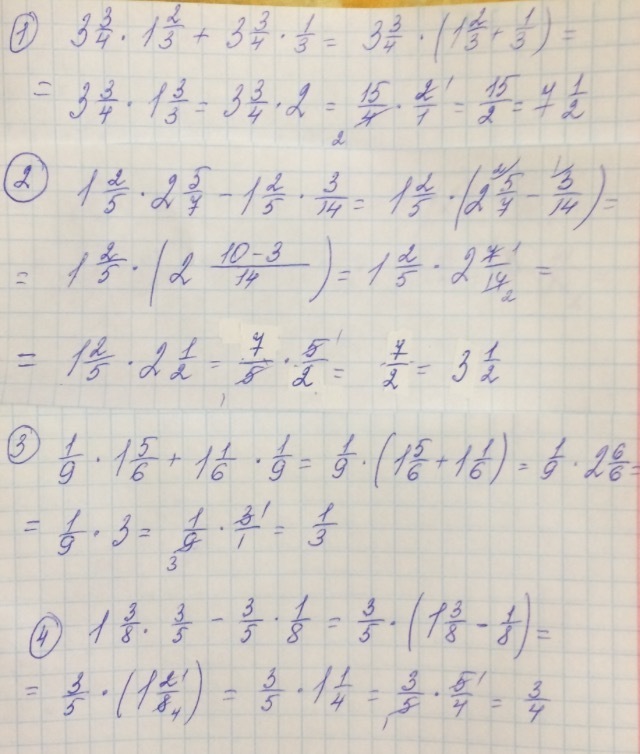 ① 3 3/4 · 1 2/3 + 3 3/4 · 1/3 = 3 3/4 · (1 2/3 + 1/3) =
= 3 3/4 · 1 3/3 = 3 3/4 · 2 = 15/4 · 2/1 = 15/2 = 7 1/2
② 1 2/5 · 2 5/7 − 1 2/5 · 3/14 = 1 2/5 · (2 5/7 − 3/14) =
= 1 2/5 · (2 (10−3)/14) = 1 2/5 · 2 7/14 =
= 1 2/5 · 2 1/2 = 7/5 · 5/2 = 7/2 = 3 1/2
③ 1/9 · 1 5/6 + 1 1/6 · 1/9 = 1/9 · (1 5/6 + 1 1/6) = 1/9 · 2 6/6 =
= 1/9 · 3 = 1/9 · 3/1 = 1/3
④ 1 3/8 · 3/5 − 3/5 · 1/8 = 3/5 · (1 3/8 − 1/8) =
= 3/5 · (1 2/8) = 3/5 · 1 1/4 = 3/5 · 5/4 = 3/4